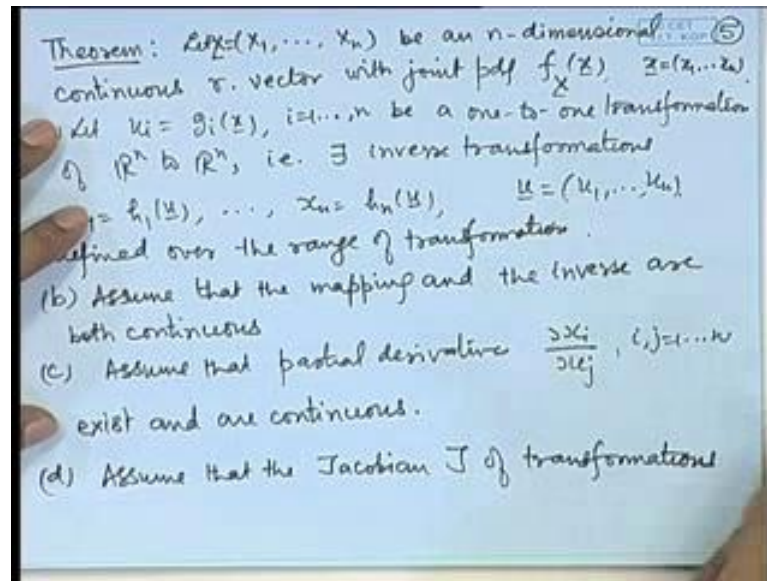 Theorem: Let X=(X1, ..., Xn) be an n-dimensional (5)
continuous r. vector with joint pdf f_X(x), x=(x1...xn).
Let ui = gi(x), i=1...,n be a one-to-one transformation
of ℝⁿ to ℝⁿ, i.e. ∃ inverse transformations
= h1(u), ..., xn = hn(u), u = (u1, ..., un)
defined over the range of transformation.
(b) Assume that the mapping and the inverse are
both continuous
(c) Assume that partial derivative ∂xi/∂uj, i,j=1...n
exist and are continuous.
(d) Assume that the Jacobian J of transformations